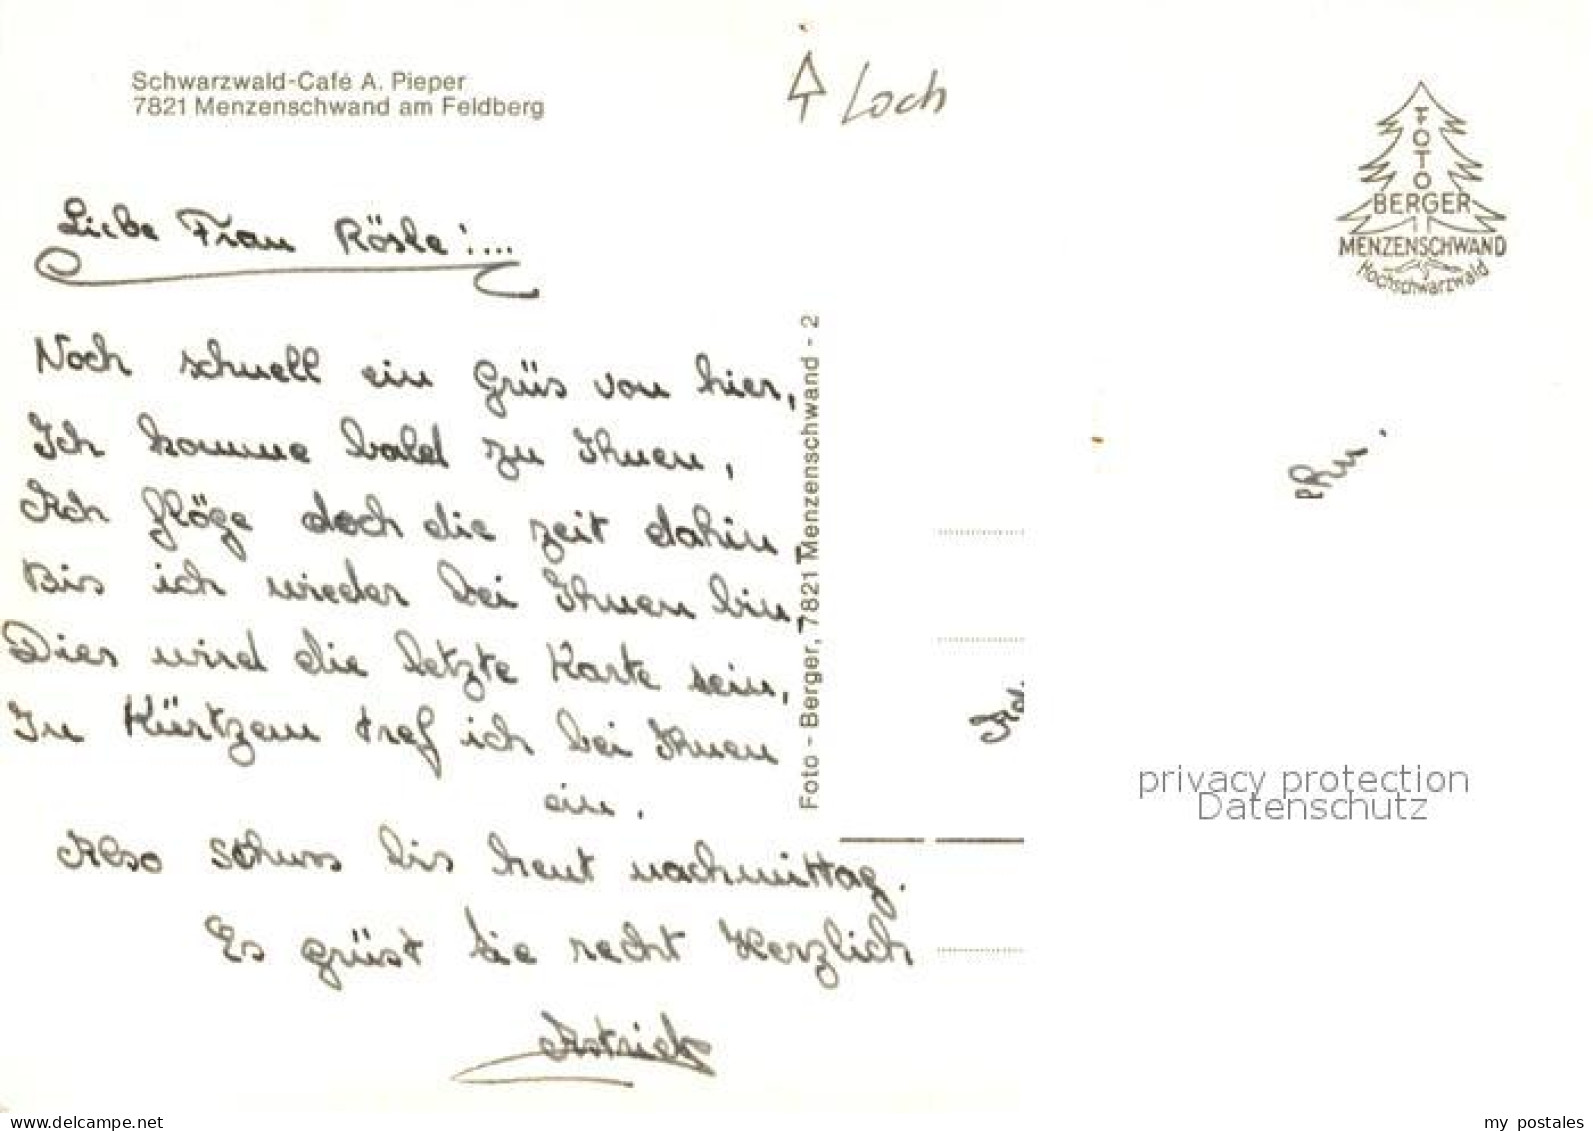 Schwarzwald-Café A. Pieper
7821 Menzenschwand am Feldberg
Loch
FOTO
BERGER
MENZENSCHWAND
Hochschwarzwald
Liebe Frau Rösle!...
Noch schnell ein Grüs von hier,
Ich komme bald zu Ihnen,
Ach flöge doch die zeit dahin,
Bis ich wieder bei Ihnen bin,
Dies wird die letzte Karte sein,
In Kürtzem tref ich bei Ihnen
ein.
Also schuss bis heut nachmittag.
Es grüst Sie recht Herzlich
Astrid
Foto - Berger, 7821 Menzenschwand - 2
privacy protection
Datenschutz
www.delcampe.net
my_postales